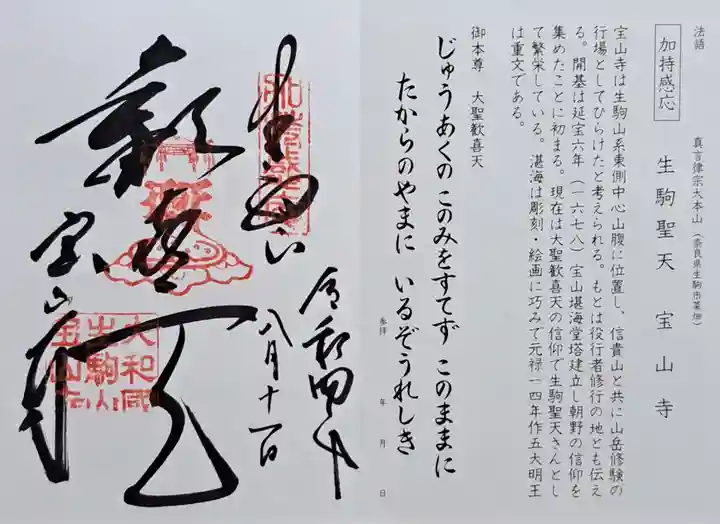 法語
加持感応
真言律宗大本山（奈良県生駒市菜畑）
生駒聖天 宝山寺
宝山寺は生駒山系東側中心山腹に位置し、信貴山と共に山岳修験の
行場としてひらけたと考えられる。もとは役行者修行の地とも伝え
る。開基は延宝六年（一六七八）宝山堪海堂塔建立し朝野の信仰を
集めたことに初まる。現在は大聖歓喜天の信仰で生駒聖天さんとし
て繁栄している。湛海は彫刻・絵画に巧みで元禄一四年作五大明王
は重文である。
御本尊 大聖歓喜天
じゅうあくの このみをすてず このままに
たからのやまに いるぞうれしき
参拝 年 月 日
令和四年
八月十一日
歓喜天
宝山寺
大和國
生駒山
宝山寺